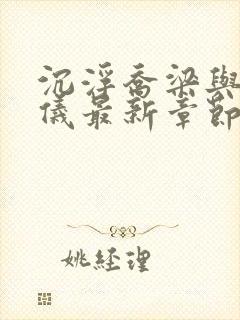 沉浮喬梁與
儀最新章節
姚經理